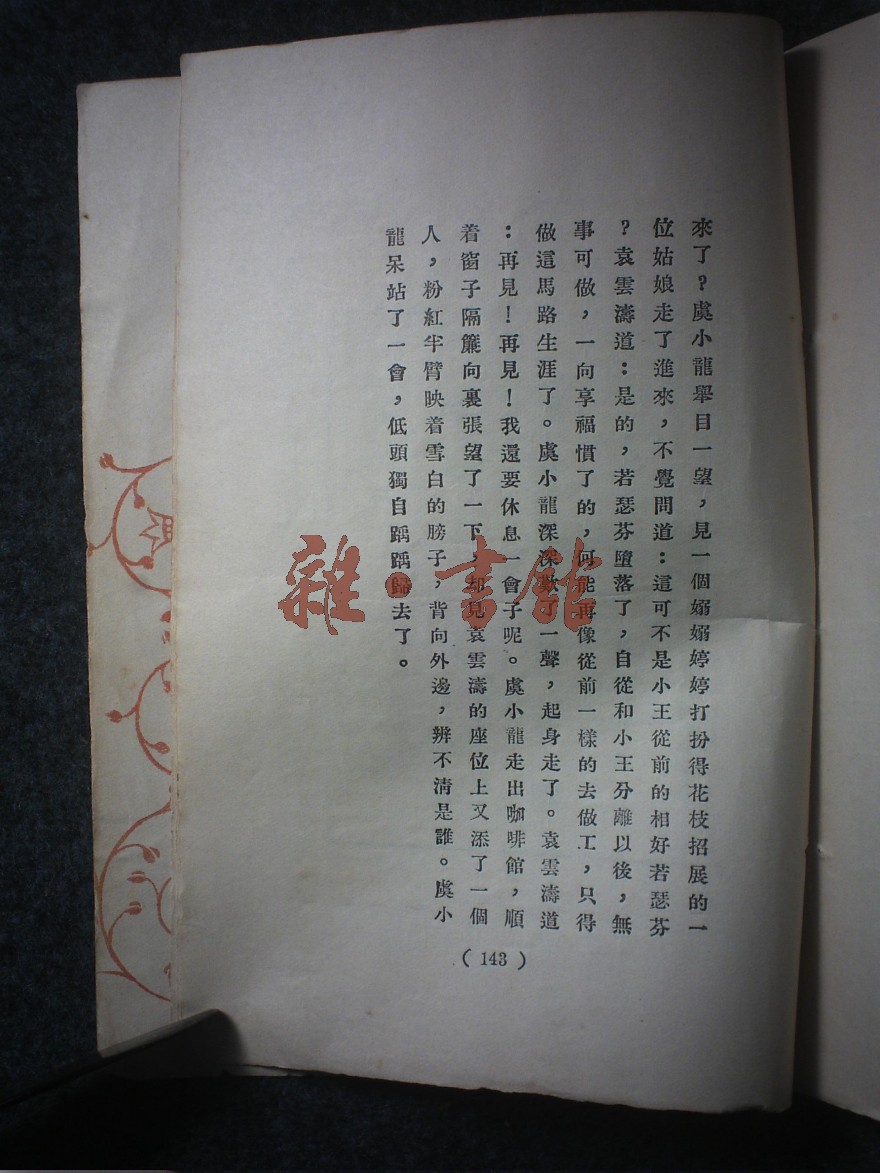 來了?虞小龍舉目一望,見一個嫋嫋婷婷打扮得花枝招展的一
位姑娘走了進來,不覺問道:這可不是小王從前的相好若瑟芬
?袁雲濤道:是的,若瑟芬墮落了,自從和小王分離以後,無
事可做,一向享福慣了的,何能再像從前一樣的去做工,只得
做這馬路生涯了。虞小龍深深歎了一聲,起身走了。袁雲濤道
:再見!再見!我還要休息一會子呢。虞小龍走出咖啡館,順
着窗子隔簾向裏張望了一下,却見袁雲濤的座位上又添了一個
人,粉紅半臂映着雪白的膀子,背向外邊,辨不清是誰。虞小
龍呆站了一會,低頭獨自踽踽歸去了。
(143)
雜·書館